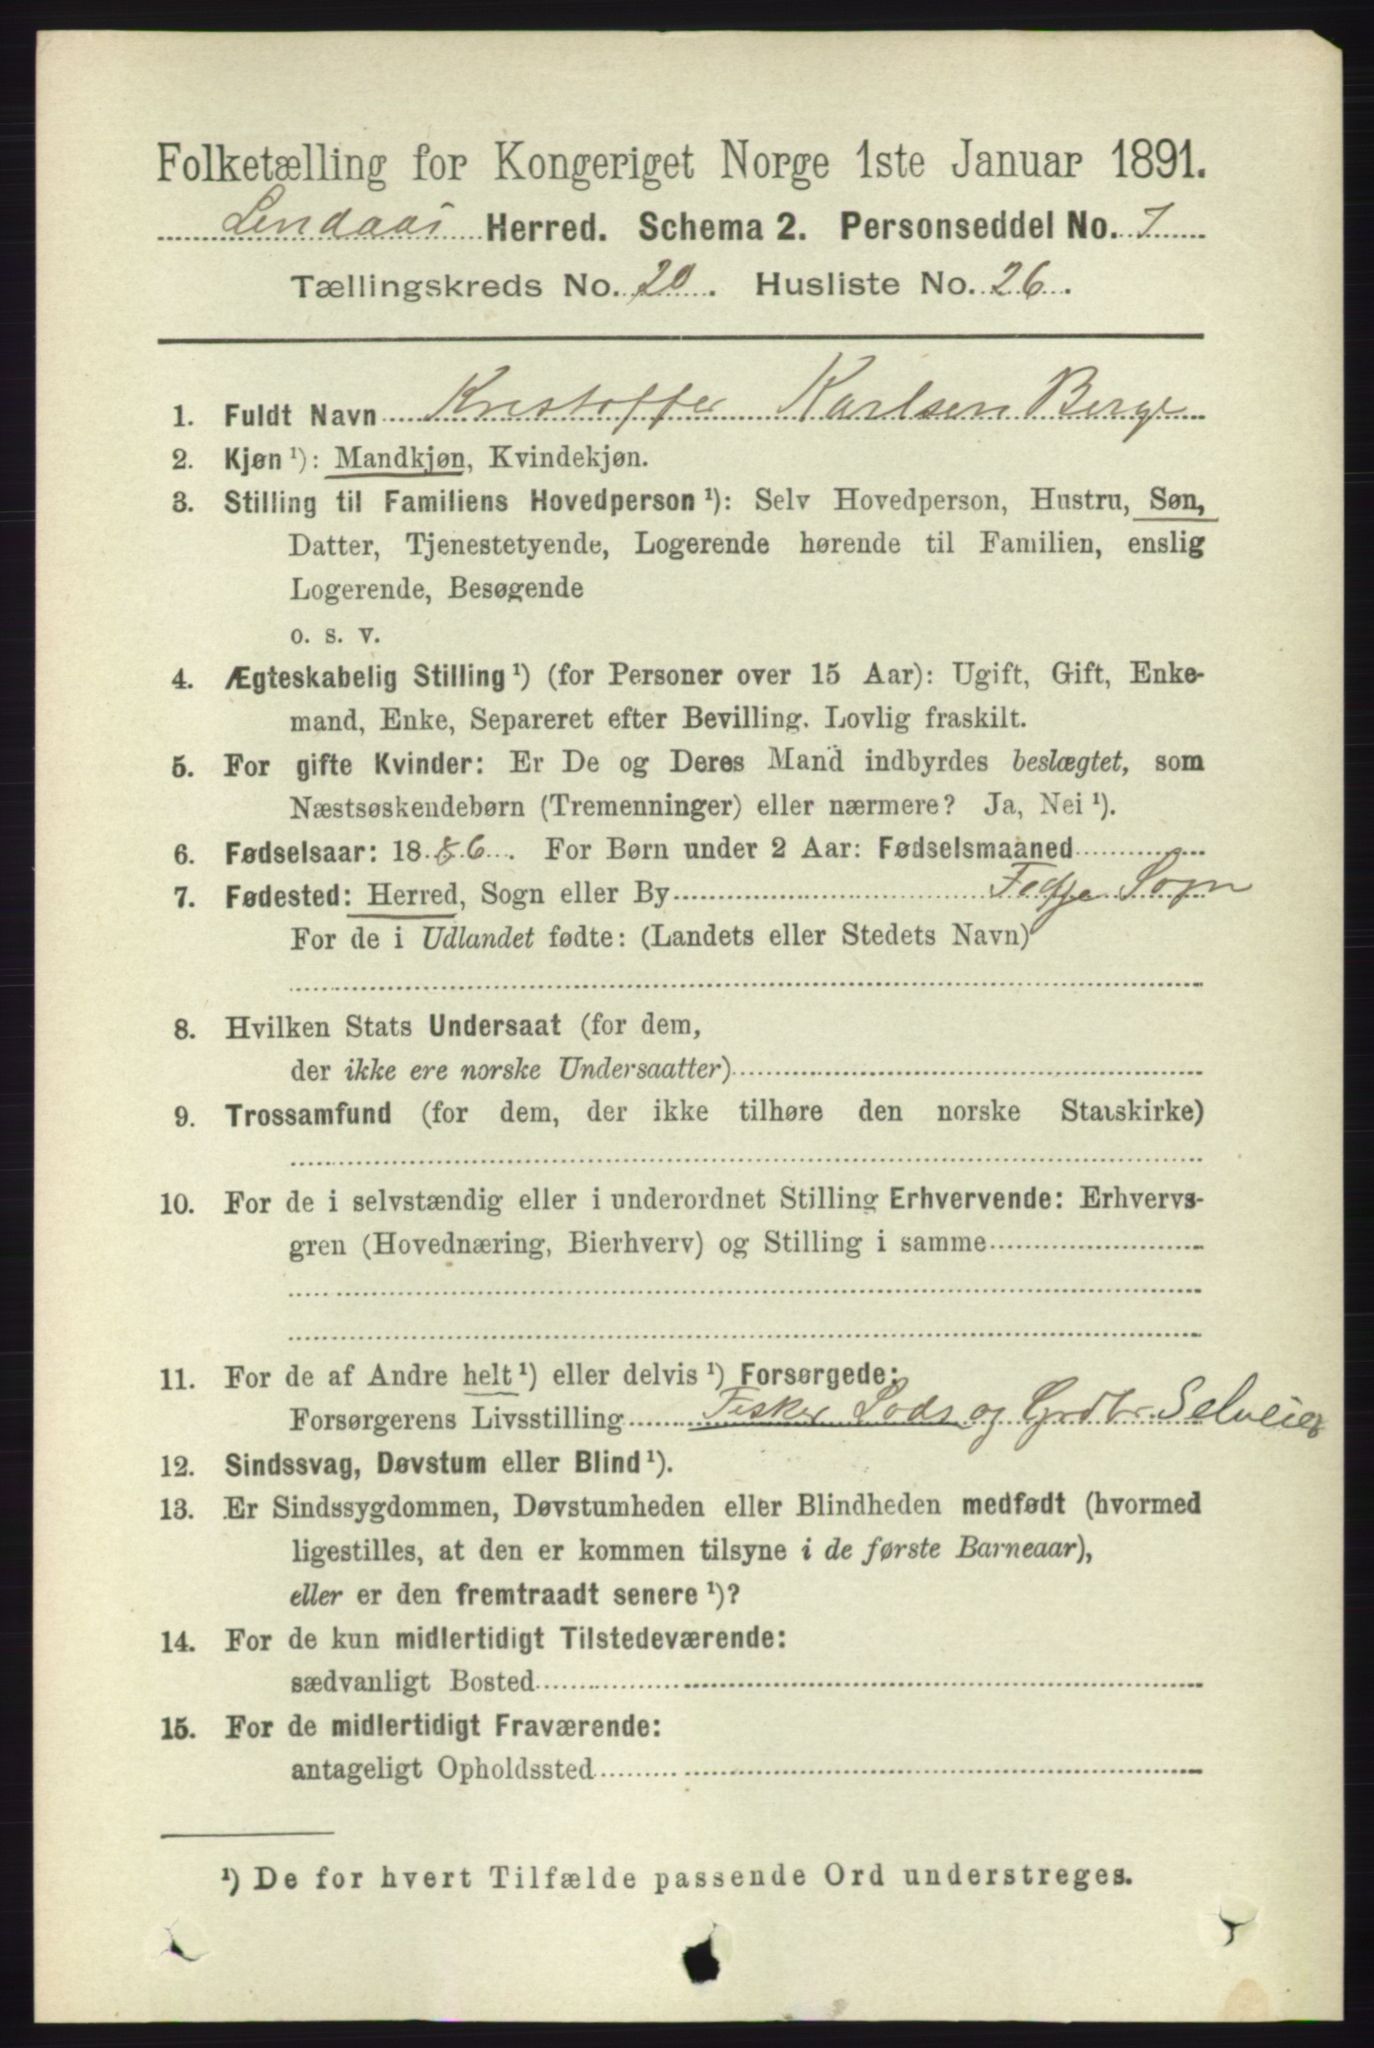 Folketælling for Kongeriget Norge 1ste Januar 1891.
Lindaas Herred. Schema 2. Personseddel No. 7
Tællingskreds No. 20. Husliste No. 26.
1. Fuldt Navn Kristoffer Karlsen Berge
2. Kjøn ¹): Mandkjøn, Kvindekjøn.
3. Stilling til Familiens Hovedperson ¹): Selv Hovedperson, Hustru, Søn,
Datter, Tjenestetyende, Logerende hørende til Familien, enslig
Logerende, Besøgende
o. s. v.
4. Ægteskabelig Stilling ¹) (for Personer over 15 Aar): Ugift, Gift, Enke-
mand, Enke, Separeret efter Bevilling. Lovlig fraskilt.
5. For gifte Kvinder: Er De og Deres Mand indbyrdes beslægtet, som
Næstsøskendebørn (Tremenninger) eller nærmere? Ja, Nei ¹).
6. Fødselsaar: 1886. For Børn under 2 Aar: Fødselsmaaned
7. Fødested: Herred, Sogn eller By Fedje Sogn
For de i Udlandet fødte: (Landets eller Stedets Navn)
8. Hvilken Stats Undersaat (for dem,
der ikke ere norske Undersaatter)
9. Trossamfund (for dem, der ikke tilhøre den norske Statskirke)
10. For de i selvstændig eller i underordnet Stilling Erhvervende: Erhvervs-
gren (Hovednæring, Bierhverv) og Stilling i samme
11. For de af Andre helt ¹) eller delvis ¹) Forsørgede:
Forsørgerens Livsstilling Fisker Lods og Grdbr Selveier
12. Sindssvag, Døvstum eller Blind ¹).
13. Er Sindssygdommen, Døvstumheden eller Blindheden medfødt (hvormed
ligestilles, at den er kommen tilsyne i de første Barneaar),
eller er den fremtraadt senere ¹)?
14. For de kun midlertidigt Tilstedeværende:
sædvanligt Bosted
15. For de midlertidigt Fraværende:
antageligt Opholdssted
¹) De for hvert Tilfælde passende Ord understreges.